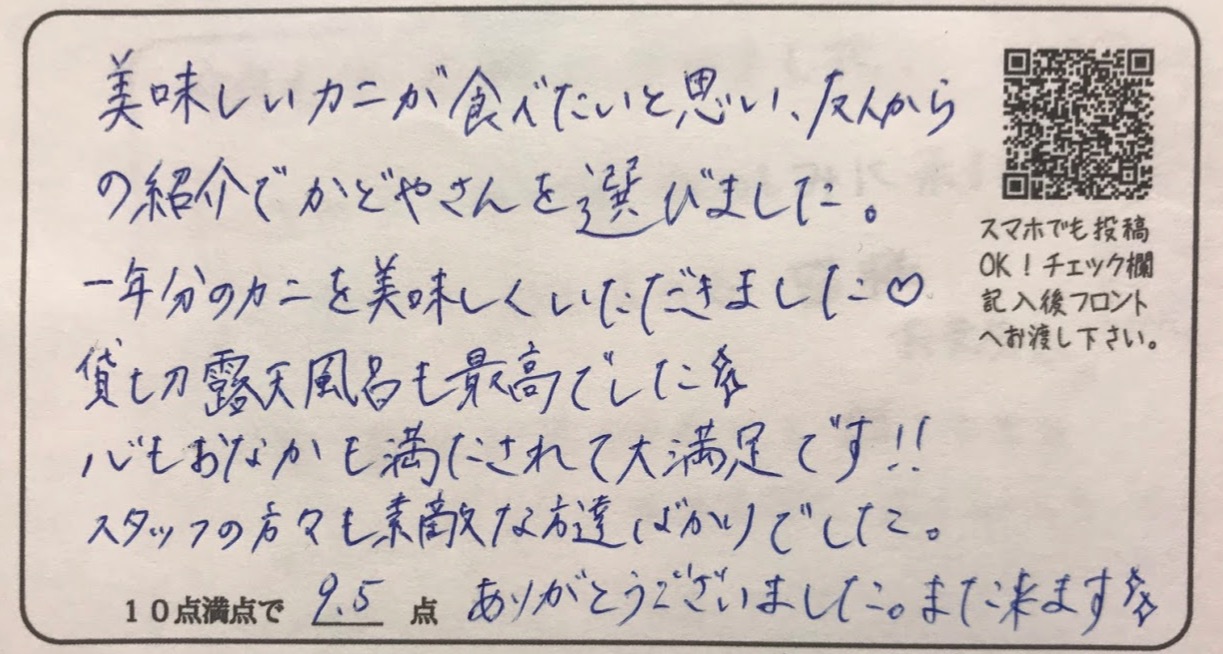 美味しいカニが食べたいと思い、友人から
の紹介でかどやさんを選びました。
一年分のカニを美味しくいただきました♡
貸切露天風呂も最高でした☆
心もおなかも満たされて大満足です!!
スタッフの方々も素敵な方達ばかりでした。
10点満点で 9.5 点 ありがとうございました。また来ます☆
スマホでも投稿
OK!チェック欄
記入後フロント
へお渡し下さい。